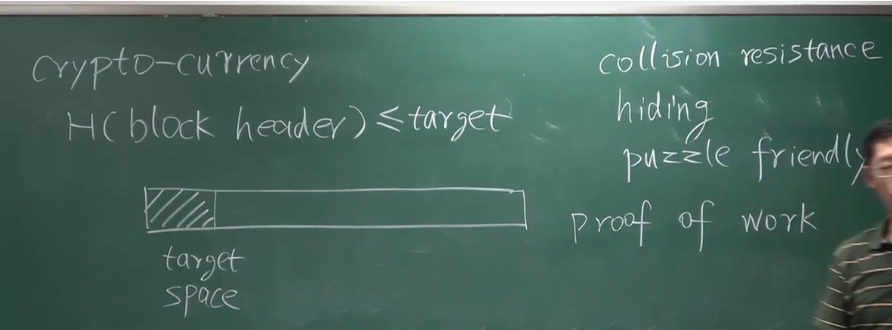 crypto-currency
H(block header) ≤ target
target
space
collision resistance
hiding
puzzle friendly
proof of work